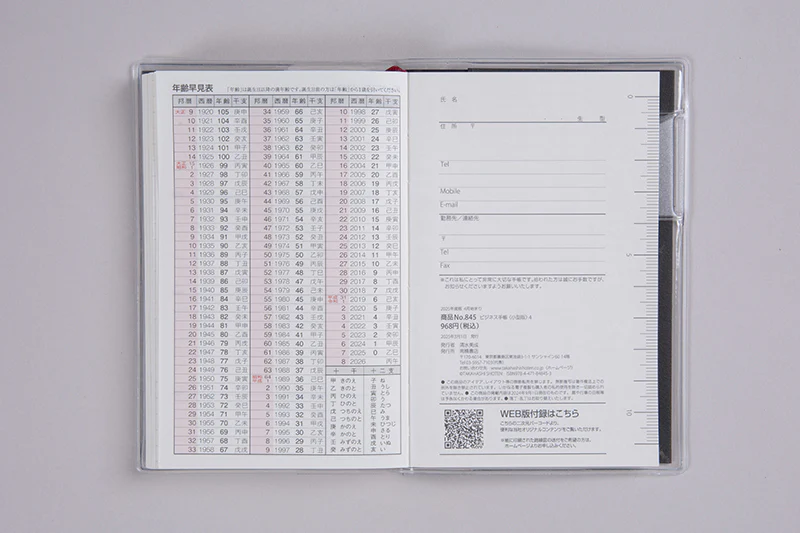 年齢早見表
邦暦 西暦 年齢 干支
大正 9 1920 105 庚申
10 1921 104 辛酉
11 1922 103 壬戌
12 1923 102 癸亥
13 1924 101 甲子
14 1925 100 乙丑
1926 99 丙寅
2 1927 98 丁卯
3 1928 97 戊辰
4 1929 96 己巳
5 1930 95 庚午
6 1931 94 辛未
7 1932 93 壬申
8 1933 92 癸酉
9 1934 91 甲戌
10 1935 90 乙亥
11 1936 89 丙子
12 1937 88 丁丑
13 1938 87 戊寅
14 1939 86 己卯
15 1940 85 庚辰
16 1941 84 辛巳
17 1942 83 壬午
18 1943 82 癸未
19 1944 81 甲申
20 1945 80 乙酉
21 1946 79 丙戌
22 1947 78 丁亥
23 1948 77 戊子
24 1949 76 己丑
25 1950 75 庚寅
26 1951 74 辛卯
27 1952 73 壬辰
28 1953 72 癸巳
29 1954 71 甲午
30 1955 70 乙未
31 1956 69 丙申
32 1957 68 丁酉
33 1958 67 戊戌
邦暦 西暦 年齢 干支
34 1959 66 己亥
35 1960 65 庚子
36 1961 64 辛丑
37 1962 63 壬寅
38 1963 62 癸卯
39 1964 61 甲辰
40 1965 60 乙巳
41 1966 59 丙午
42 1967 58 丁未
43 1968 57 戊申
44 1969 56 己酉
45 1970 55 庚戌
46 1971 54 辛亥
47 1972 53 壬子
48 1973 52 癸丑
49 1974 51 甲寅
50 1975 50 乙卯
51 1976 49 丙辰
52 1977 48 丁巳
53 1978 47 戊午
54 1979 46 己未
55 1980 45 庚申
56 1981 44 辛酉
57 1982 43 壬戌
58 1983 42 癸亥
59 1984 41 甲子
60 1985 40 乙丑
61 1986 39 丙寅
62 1987 38 丁卯
63 1988 37 戊辰
1989 36 己巳
2 1990 35 庚午
3 1991 34 辛未
4 1992 33 壬申
5 1993 32 癸酉
6 1994 31 甲戌
7 1995 30 乙亥
8 1996 29 丙子
9 1997 28 丁丑
邦暦 西暦 年齢 干支
10 1998 27 戊寅
11 1999 26 己卯
12 2000 25 庚辰
13 2001 24 辛巳
14 2002 23 壬午
15 2003 22 癸未
16 2004 21 甲申
17 2005 20 乙酉
18 2006 19 丙戌
19 2007 18 丁亥
20 2008 17 戊子
21 2009 16 己丑
22 2010 15 庚寅
23 2011 14 辛卯
24 2012 13 壬辰
25 2013 12 癸巳
26 2014 11 甲午
27 2015 10 乙未
28 2016 9 丙申
29 2017 8 丁酉
30 2018 7 戊戌
2019 6 己亥
2 2020 5 庚子
3 2021 4 辛丑
4 2022 3 壬寅
5 2023 2 癸卯
6 2024 1 甲辰
7 2025 0 乙巳
8 2026 丙午
十干 十二支
甲 きのえ 子 ね
乙 きのと 丑 うし
丙 ひのえ 寅 とら
丁 ひのと 卯 う
戊 つちのえ 辰 たつ
己 つちのと 巳 み
庚 かのえ 午 うま
辛 かのと 未 ひつじ
壬 みずのえ 申 さる
癸 みずのと 酉 とり
戌 いぬ
亥 い
氏名
住所 〒
Tel
Mobile
E-mail
勤務先／連絡先
〒
Tel
Fax
※これは私にとって非常に大切な手帳です。拾われた方は誠にお手数ですが、
お知らせくださいますようお願いいたします。
商品No.845 ビジネス手帳〈小型版〉4
968円(税込)
WEB版付録はこちら
こちらの二次元バーコードより、
便利な当社オリジナルコンテンツをご覧いただけます。
ホームページよりお申し込みください。
0
5
10